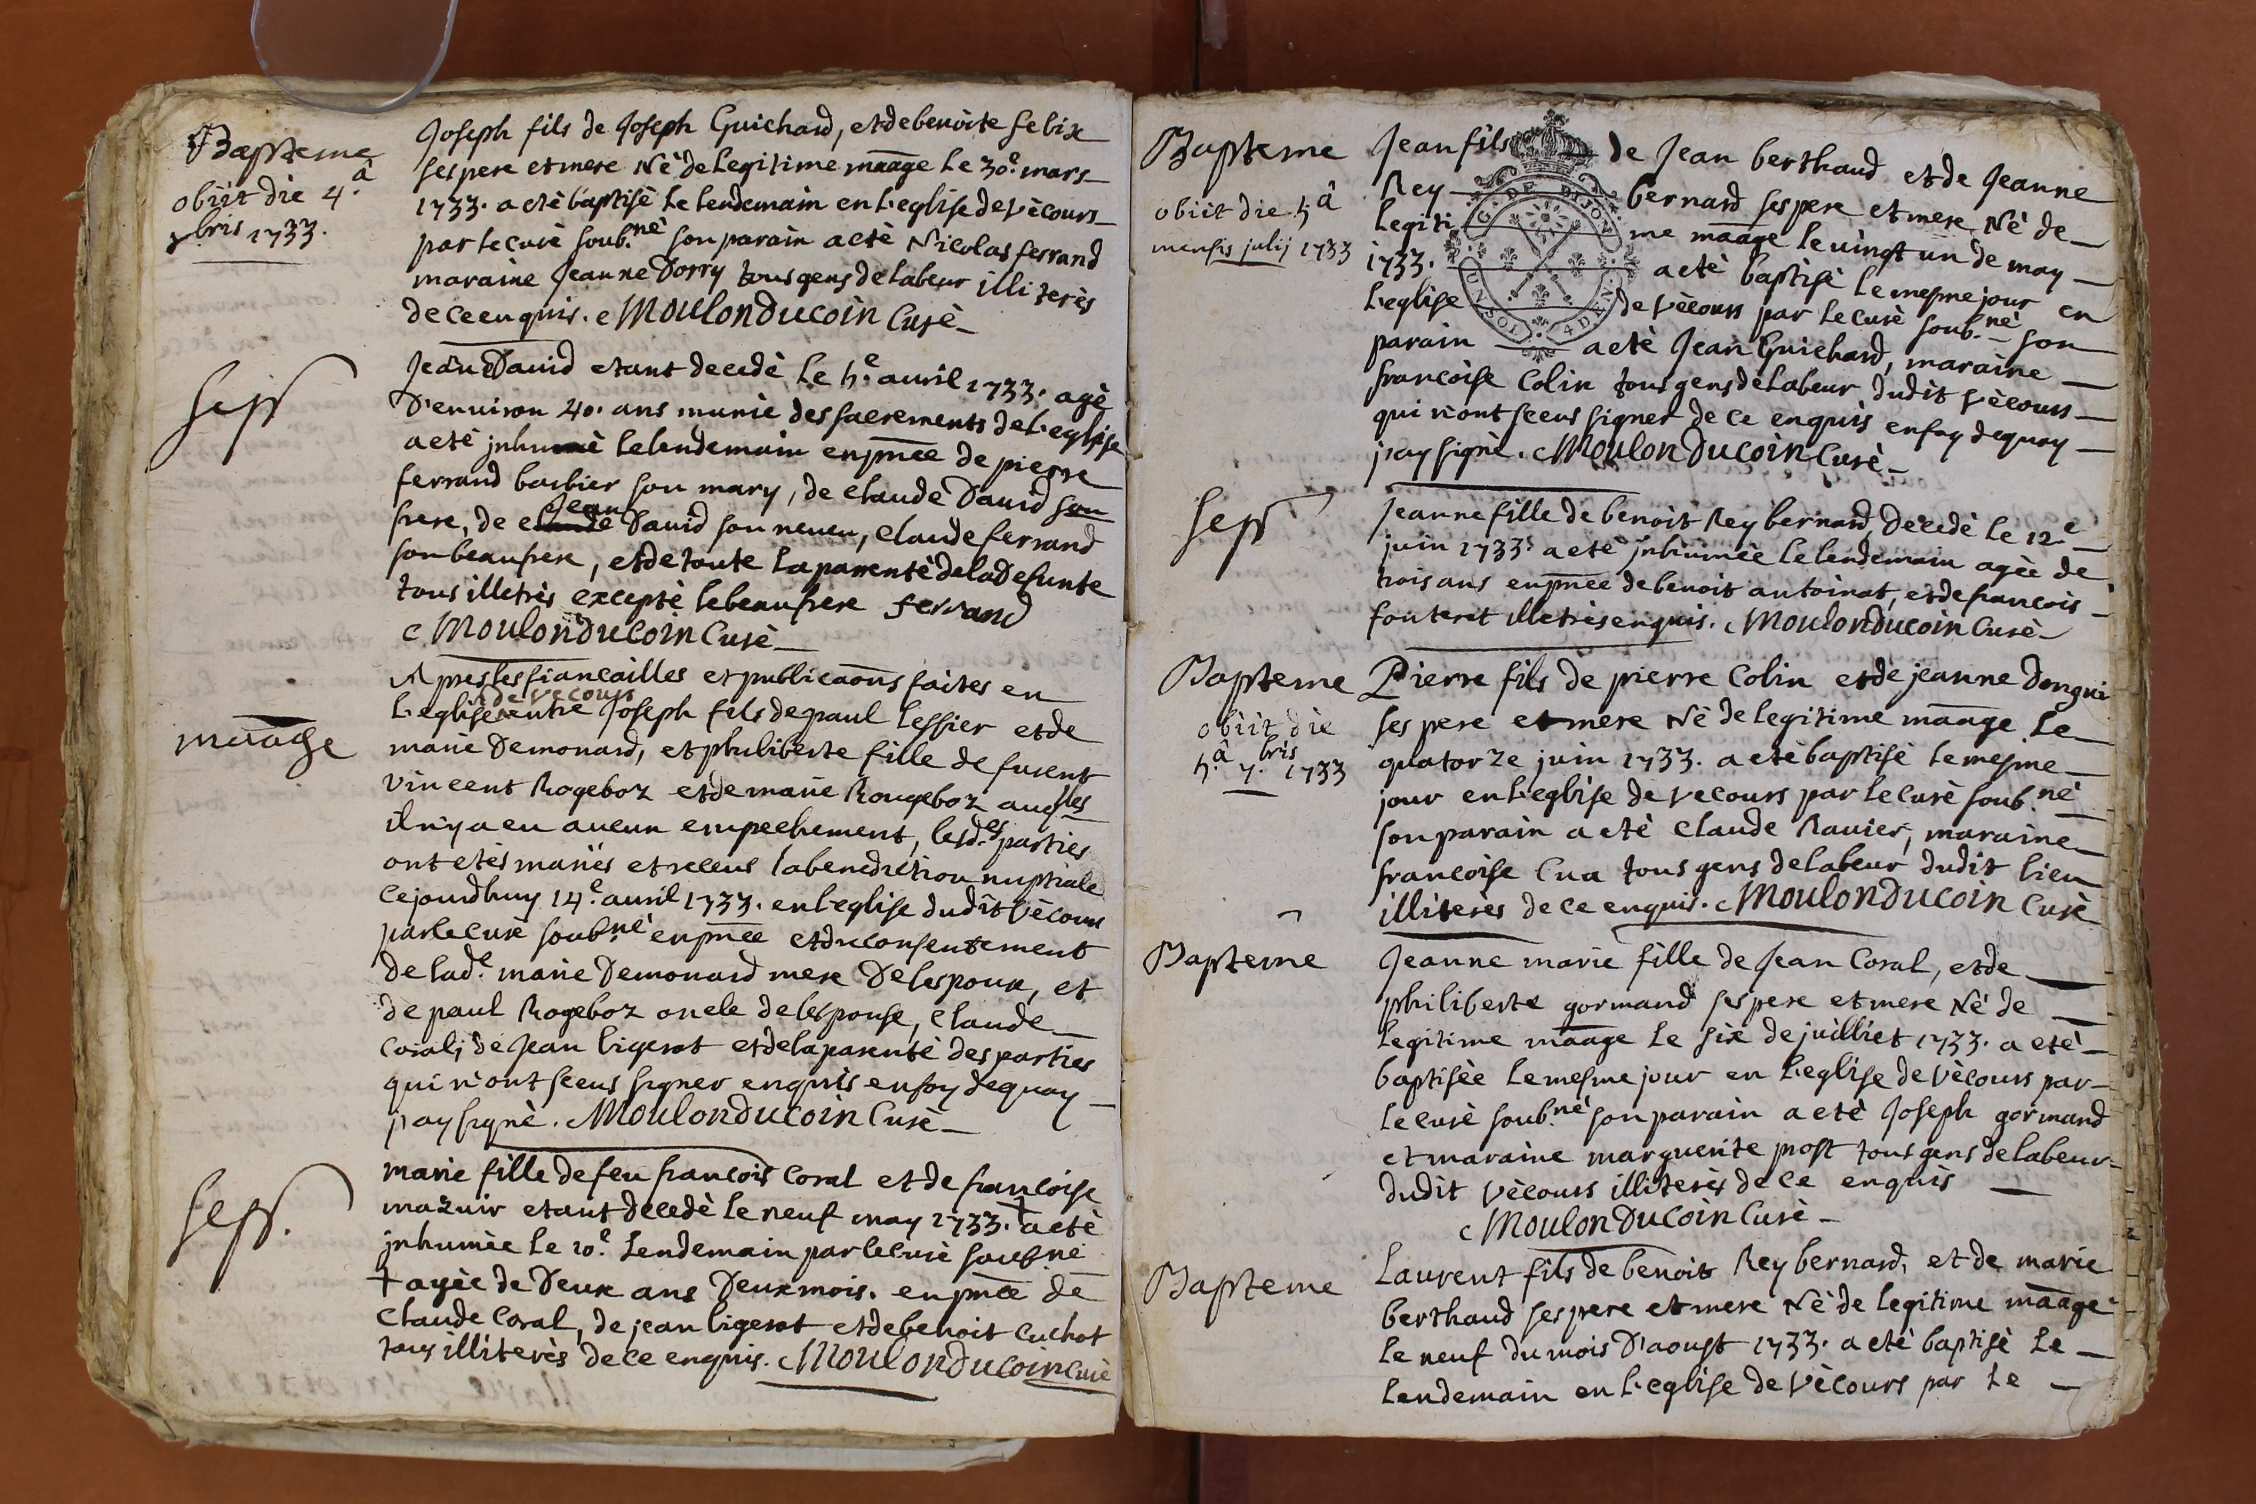 Bapteme
obiit die 4.a
xbris 1733.
Joseph fils de Joseph Guichard, et de benoite felix
ses pere et mere Nè de Legitime maage Le 30.e mars
1733. a etè baptisè Le lendemain en L'eglise de vècours
par Le curè soub.nè son parain a etè Nicolas ferrand
maraine Jeanne Dorry tous gens de labeur illiterès
de ce enquis. Moulon Ducoin Curè
sep
Jeanne David etant decedè Le 5.e avril 1733. agè
D'environ 40. ans munie des sacrements de L'eglise
a etè jnhumè le lendemain en pnce de pierre
ferrand barbier son mary, de claude David son
frere, de claude Jean David son neveu, claude ferrand
son beaufrere, et de toute La parentè de la Defunte
tous illetrès exceptè le beaufrere ferrand
Moulon Ducoin Curè
maage
Apres les fiancailles et publicaons faites en
L'eglise de vecours entre Joseph fils de paul Lessier et de
marie Demonard, et philiberte fille de furent
vincent Rogeboz et de marie Rougeboz auqlles
il n'y a eu aucun empechement, lesd.es parties
ont etès mariès et receus la benediction nuptiale
cejourdhuy 14.e avril 1733. en L'eglise dudit vècours
par le curè soub.nè en pnce et du consentement
de lad.e marie Demonard mere De lespoux, et
de paul Rogeboz oncle de lespouse, claude
coral, de Jean bigerot et de la parentè des parties
qui n'ont sceus signer enquis en foy dequoy
j'ay signè. Moulon Ducoin Curè
sep.
marie fille de feu francois Coral et de francoise
mazuir etant decedè Le neuf may 1733. + a etè
jnhumèe Le 10.e Lendemain par le curè soub.nè
+ agèe de Deux ans Deux mois. en pnce de
Claude Coral, de jean bigerot et de benoit cuchot
tous illiterès de ce enquis. Moulon Ducoin Curè
Bapteme
obiit die 5.a
mensis julij 1733
G. DE DIJON
UN SOL 4 DEN
Jean fils de Jean berthaud et de Jeanne
Rey bernard ses pere et mere Nè de
Legitime maage le vingt un de may
1733. a etè baptisè Le mesme jour en
L'eglise de vècours par Le curè soub.nè son
parain a etè Jean Guichard, maraine
francoise Colin tous gens de labeur dudit vècours
qui n'ont sceus signer de ce enquis en foy dequoy
j'ay signè. Moulon Ducoin Curè
sep
Jeanne fille de benoit Rey bernard, decedè Le 12.e
juin 1733. a etè jnhumèe le lendemain agèe de
trois ans en pnce de benoit antoinat, et de francois
fonteret illetrès enquis. Moulon Ducoin Curè
Bapteme
obiit die
5.a 7.bris 1733
Pierre fils de pierre Colin et de jeanne Dangui
ses pere et mere Nè de legitime maage Le
quatorze juin 1733. a etè baptisè Le mesme
jour en L'eglise de vecours par Le curè soub.nè
son parain a etè Claude Ravier, maraine
francoise Cua tous gens de labeur dudit lieu
illiterès de ce enquis. Moulon Ducoin Curè
Bapteme
Jeanne marie fille de Jean Coral, et de
philiberte gormand ses pere et mere Nè de
Legitime maage Le six de juilliet 1733. a etè
baptisèe Le mesme jour en L'eglise de vècours par
Le curè soub.nè son parain a etè Joseph gormand
et maraine marguerite prost tous gens de labeur
dudit vècours illiterès de ce enquis
Moulon Ducoin Curè
Bapteme
Laurent fils de benoit Rey bernard, et de marie
berthaud ses pere et mere Nè de legitime maage
Le neuf du mois D'aoust 1733. a etè baptisè Le
Lendemain en L'eglise de vècours par Le